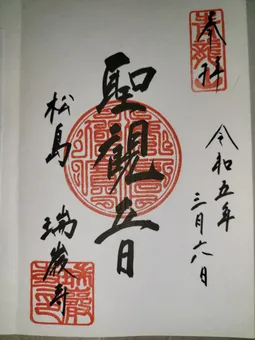 奉拝
令和五年
三月六日
聖観音
松島
瑞巌寺